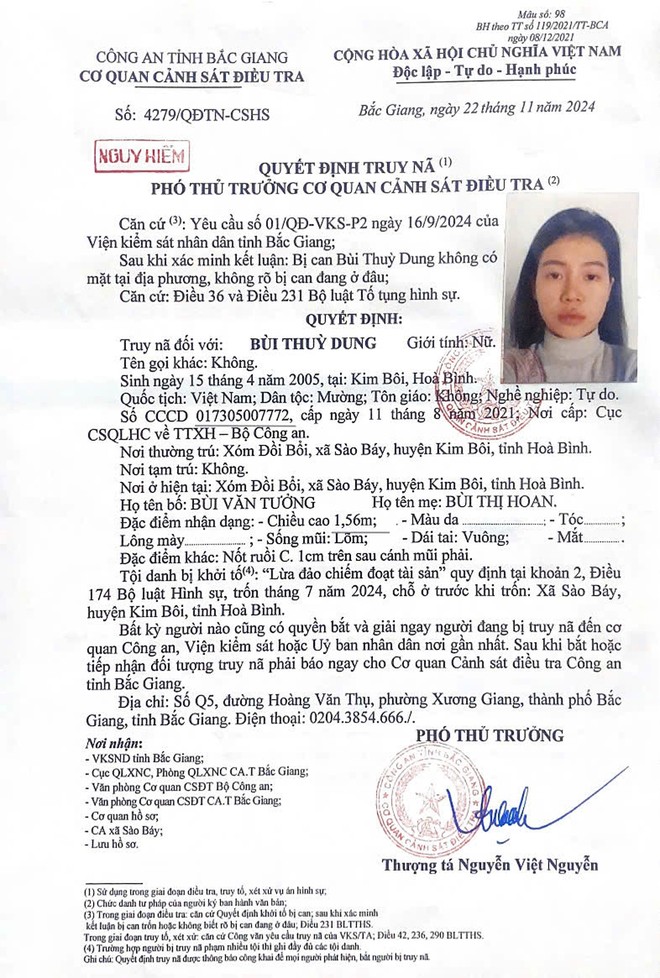 Mẫu số: 98
BH theo TT số 119/2021/TT-BCA
ngày 08/12/2021
CÔNG AN TỈNH BẮC GIANG
CƠ QUAN CẢNH SÁT ĐIỀU TRA
CỘNG HÒA XÃ HỘI CHỦ NGHĨA VIỆT NAM
Độc lập - Tự do - Hạnh phúc
Số: 4279/QĐTN-CSHS
Bắc Giang, ngày 22 tháng 11 năm 2024
NGUY HIỂM
QUYẾT ĐỊNH TRUY NÃ (1)
PHÓ THỦ TRƯỞNG CƠ QUAN CẢNH SÁT ĐIỀU TRA (2)
Căn cứ (3): Yêu cầu số 01/QĐ-VKS-P2 ngày 16/9/2024 của
Viện kiểm sát nhân dân tỉnh Bắc Giang;
Sau khi xác minh kết luận: Bị can Bùi Thuỳ Dung không có
mặt tại địa phương, không rõ bị can đang ở đâu;
Căn cứ: Điều 36 và Điều 231 Bộ luật Tố tụng hình sự.
QUYẾT ĐỊNH:
Truy nã đối với: BÙI THUỲ DUNG Giới tính: Nữ.
Tên gọi khác: Không.
Sinh ngày 15 tháng 4 năm 2005, tại: Kim Bôi, Hoà Bình.
Quốc tịch: Việt Nam; Dân tộc: Mường; Tôn giáo: Không; Nghề nghiệp: Tự do.
Số CCCD 017305007772, cấp ngày 11 tháng 8 năm 2021; Nơi cấp: Cục
CSQLHC về TTXH – Bộ Công an.
Nơi thường trú: Xóm Đồi Bổi, xã Sào Báy, huyện Kim Bôi, tỉnh Hoà Bình.
Nơi tạm trú: Không.
Nơi ở hiện tại: Xóm Đồi Bổi, xã Sào Báy, huyện Kim Bôi, tỉnh Hoà Bình.
Họ tên bố: BÙI VĂN TƯỞNG Họ tên mẹ: BÙI THỊ HOAN.
Đặc điểm nhận dạng: - Chiều cao 1,56m; - Màu da ..........; - Tóc..........;
Lông mày..........; - Sống mũi: Lõm; - Dái tai: Vuông; - Mắt..........
Đặc điểm khác: Nốt ruồi C. 1cm trên sau cánh mũi phải.
Tội danh bị khởi tố(4): “Lừa đảo chiếm đoạt tài sản” quy định tại khoản 2, Điều
174 Bộ luật Hình sự, trốn tháng 7 năm 2024, chỗ ở trước khi trốn: Xã Sào Báy,
huyện Kim Bôi, tỉnh Hoà Bình.
Bất kỳ người nào cũng có quyền bắt và giải ngay người đang bị truy nã đến cơ
quan Công an, Viện kiểm sát hoặc Uỷ ban nhân dân nơi gần nhất. Sau khi bắt hoặc
tiếp nhận đối tượng truy nã phải báo ngay cho Cơ quan Cảnh sát điều tra Công an
tỉnh Bắc Giang.
Địa chỉ: Số Q5, đường Hoàng Văn Thụ, phường Xương Giang, thành phố Bắc
Giang, tỉnh Bắc Giang. Điện thoại: 0204.3854.666./.
Nơi nhận:
- VKSND tỉnh Bắc Giang;
- Cục QLXNC, Phòng QLXNC CA.T Bắc Giang;
- Văn phòng Cơ quan CSĐT Bộ Công an;
- Văn phòng Cơ quan CSĐT CA.T Bắc Giang;
- Cơ quan hồ sơ;
- CA xã Sào Báy;
- Lưu hồ sơ.
PHÓ THỦ TRƯỞNG
CÔNG AN TỈNH BẮC GIANG
CƠ QUAN CẢNH SÁT ĐIỀU TRA
Thượng tá Nguyễn Việt Nguyễn
(1) Sử dụng trong giai đoạn điều tra, truy tố, xét xử vụ án hình sự;
(2) Chức danh tư pháp của người ký ban hành văn bản;
(3) Trong giai đoạn điều tra: căn cứ Quyết định khởi tố bị can; sau khi xác minh
kết luận bị can trốn hoặc không biết rõ bị can đang ở đâu; Điều 231 BLTTHS.
Trong giai đoạn truy tố, xét xử: căn cứ Công văn yêu cầu truy nã của VKS/TA; Điều 42, 236, 290 BLTTHS.
(4) Trường hợp người bị truy nã phạm nhiều tội thì ghi đầy đủ các tội danh.
Ghi chú: Quyết định truy nã được thông báo công khai để mọi người phát hiện, bắt người bị truy nã.